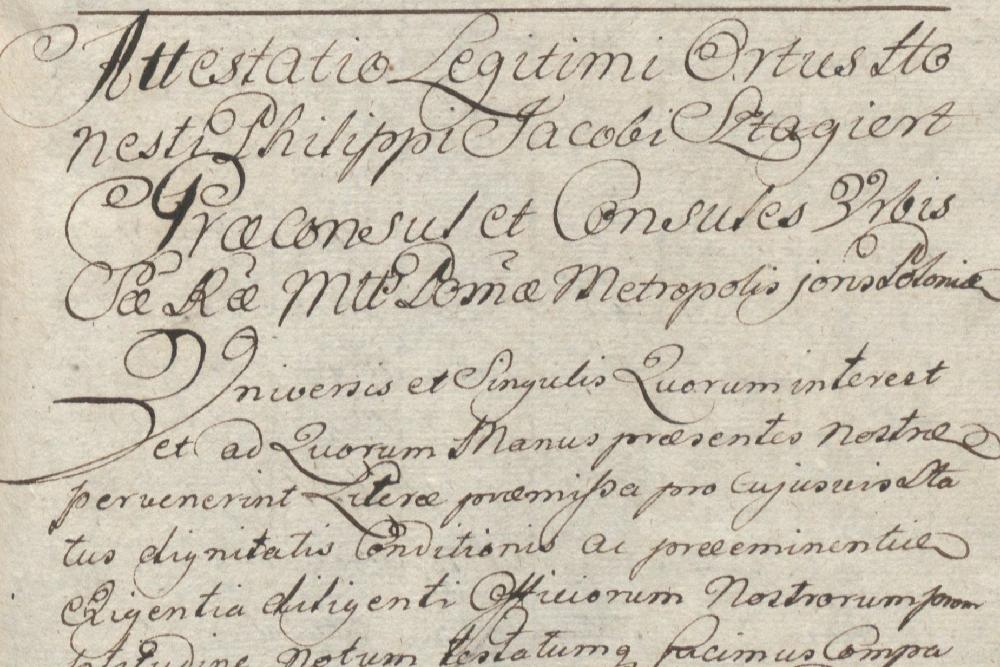 Attestatio Legitimi Ortus Ho
nesti Philippi Jacobi Sztagiert
Præconsul et Consules Urbis
Sæ Ræ Mttis Posnæ Metropolis joris Poloniæ
Universis et Singulis Quorum interest
et ad Quorum Manus præsentes nostræ
pervenerint Literæ præmissa pro cujusvis Sta
tus dignitatis Conditionis ac præeminentiæ
Exigentia diligenti Officiorum Nostrorum prom
ptitudine notum testatumq facimus Compa